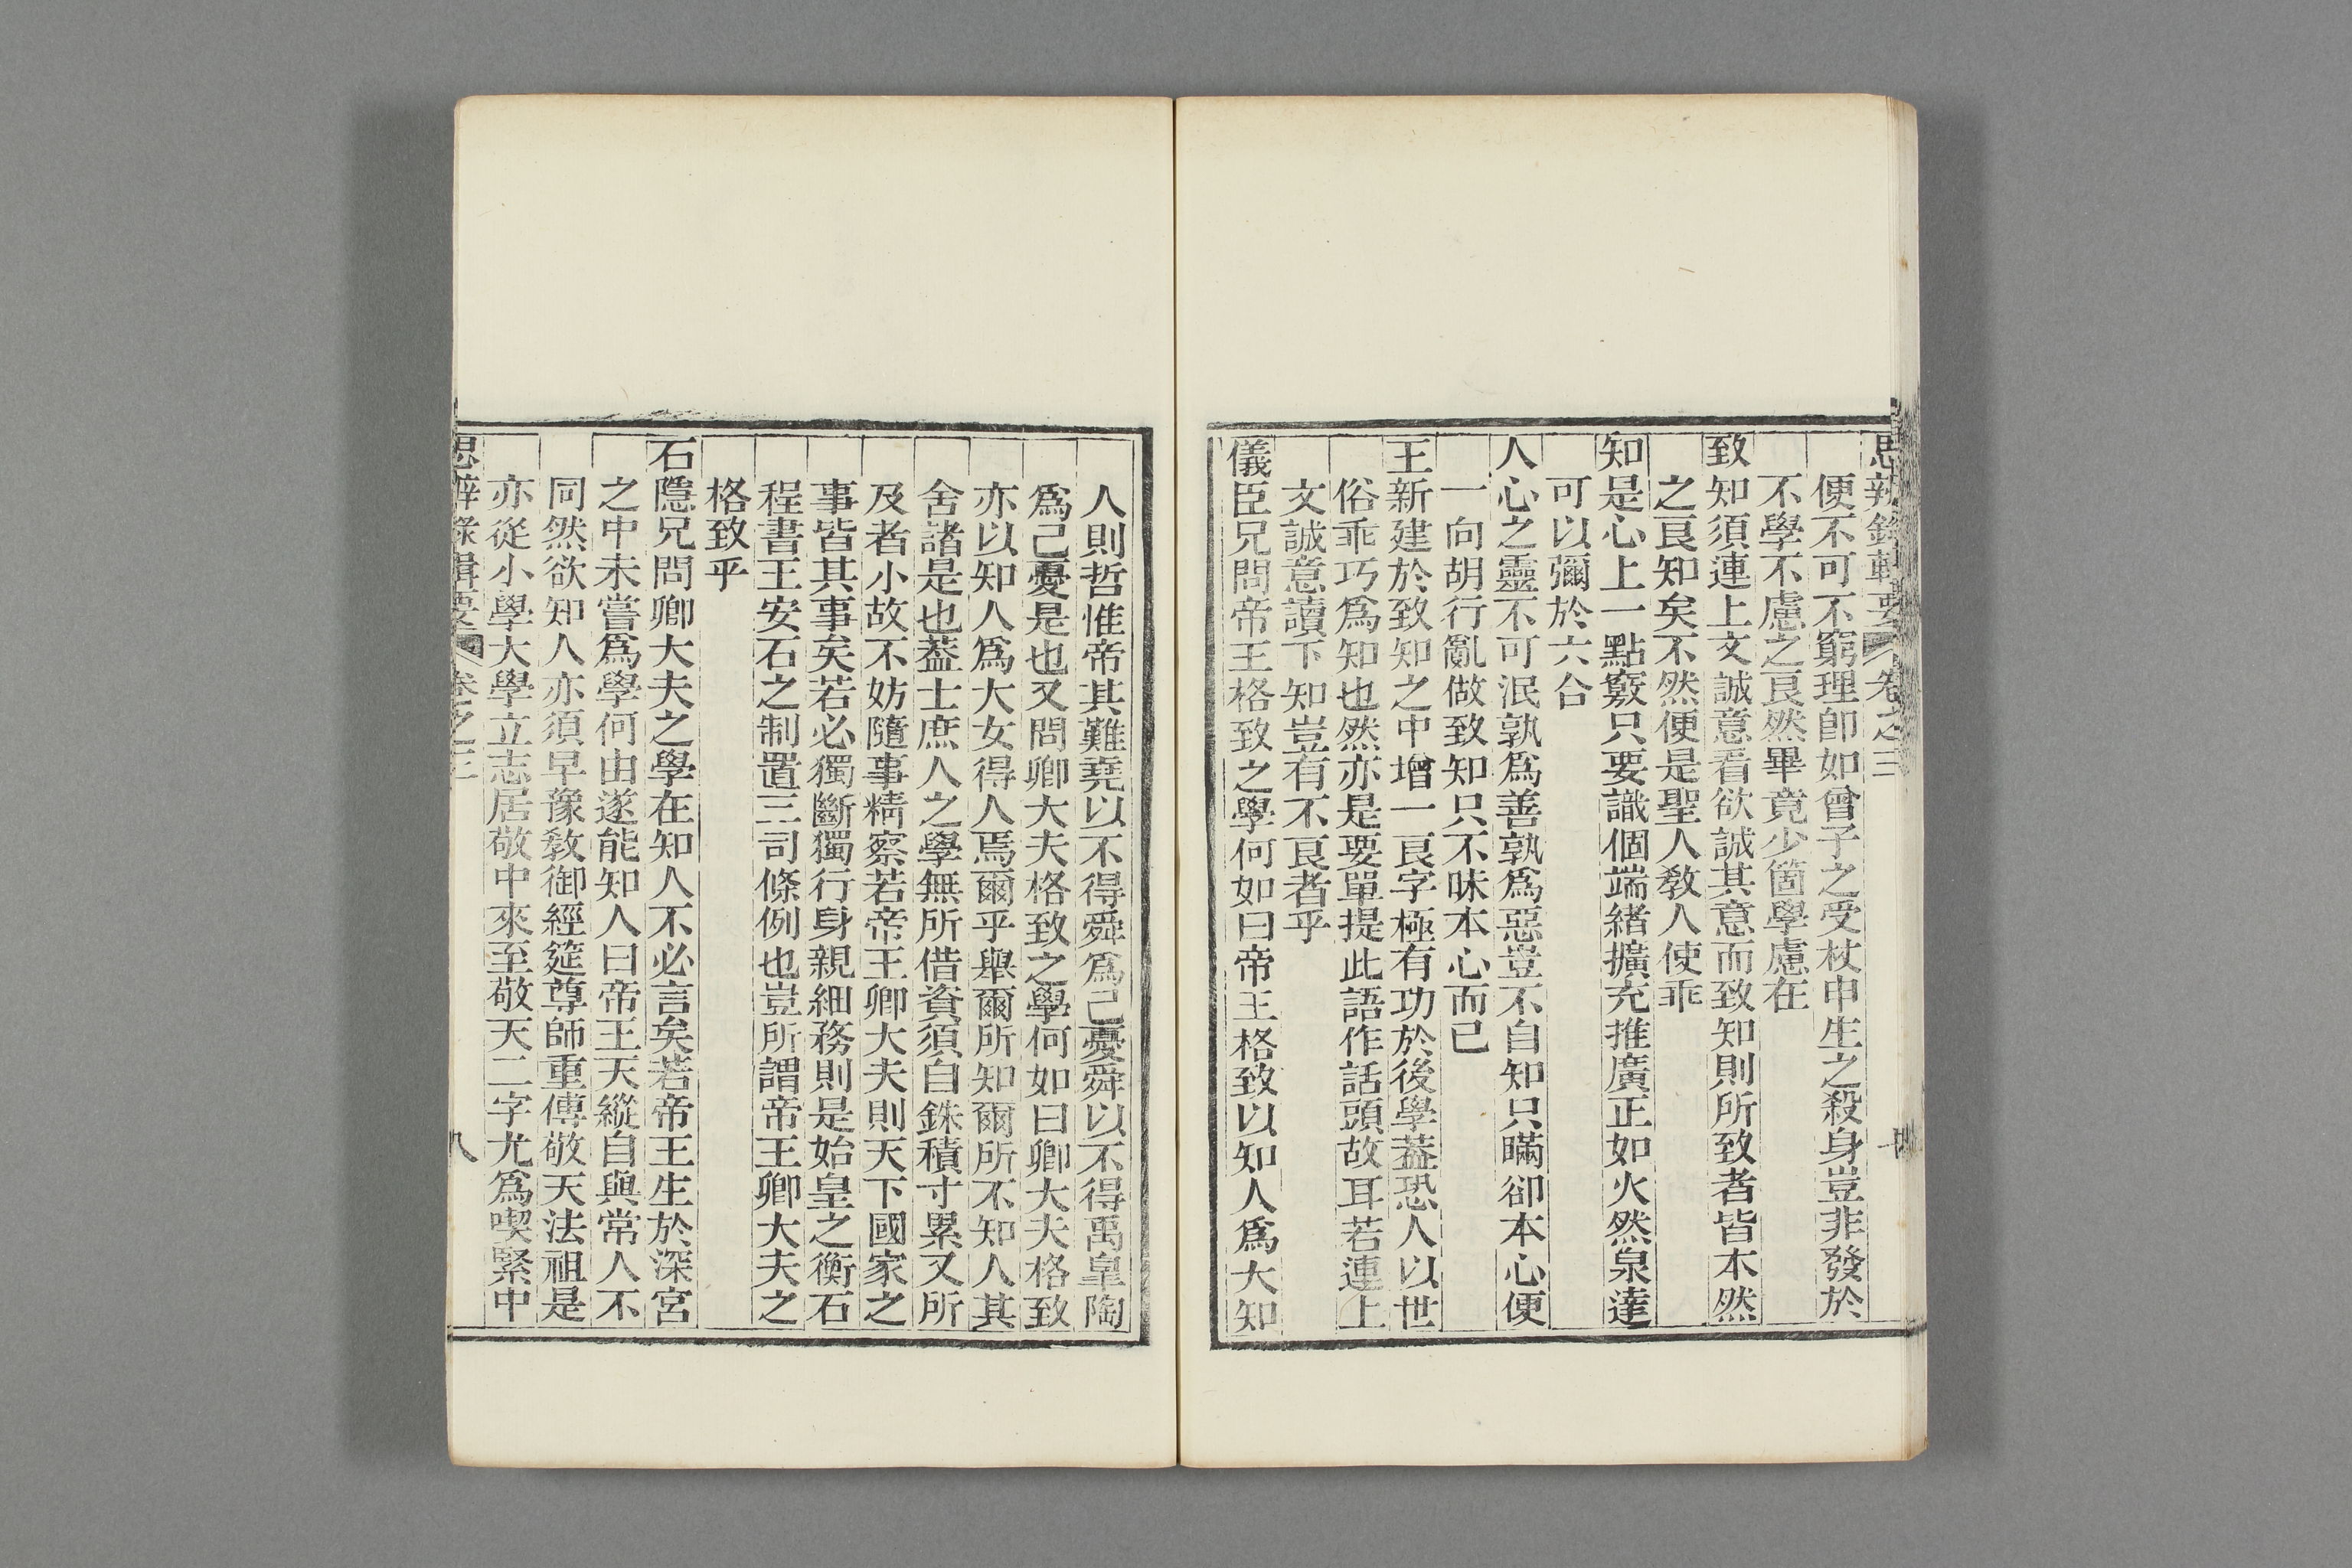 思辨錄輯要 卷之三
便不可不窮理卽如曾子之受杖申生之殺身豈非發於
不學不慮之良然畢竟少箇學慮在
致知須連上文誠意看欲誠其意而致知則所致者皆本然
之良知矣不然便是聖人敎人使乖
知是心上一點竅只要識個端緒擴充推廣正如火然泉達
可以彌於六合
人心之靈不可泯孰爲善孰爲惡豈不自知只瞞卻本心便
一向胡行亂做致知只不昧本心而已
王新建於致知之中增一良字極有功於後學葢恐人以世
俗乖巧爲知也然亦是要單提此語作話頭故耳若連上
文誠意讀下知豈有不良者乎
儀臣兄問帝王格致之學何如曰帝王格致以知人爲大知
人則哲惟帝其難堯以不得舜爲己憂舜以不得禹皇陶
爲己憂是也又問卿大夫格致之學何如曰卿大夫格致
亦以知人爲大女得人焉爾乎舉爾所知爾所不知人其
舍諸是也葢士庶人之學無所借資須自銖積寸累又所
及者小故不妨隨事精察若帝王卿大夫則天下國家之
事皆其事矣若必獨斷獨行身親細務則是始皇之衡石
程書王安石之制置三司條例也豈所謂帝王卿大夫之
格致乎
石隱兄問卿大夫之學在知人不必言矣若帝王生於深宮
之中未嘗爲學何由遂能知人曰帝王天縱自與常人不
同然欲知人亦須早豫敎御經筵尊師重傅敬天法祖是
亦從小學大學立志居敬中來至敬天二字尤爲喫緊中
思辨錄輯要 卷之三 八